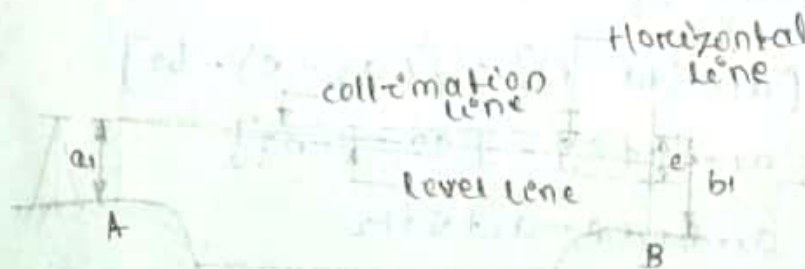 Horizontal
Line
collimation
line
a1
e
b1
level line
A
B